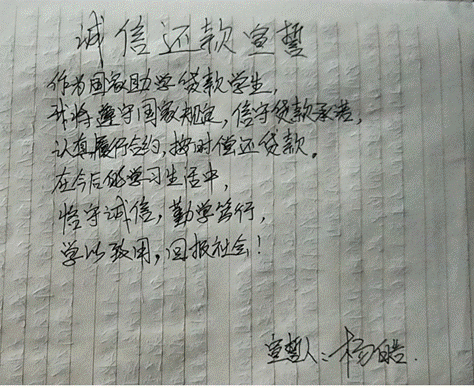 诚信还款宣誓
作为国家助学贷款学生,
我将遵守国家规定,信守贷款承诺,
认真履行合约,按时偿还贷款。
在今后的学习生活中,
恪守诚信,勤学笃行,
学以致用,回报社会!
宣誓人:杨皓